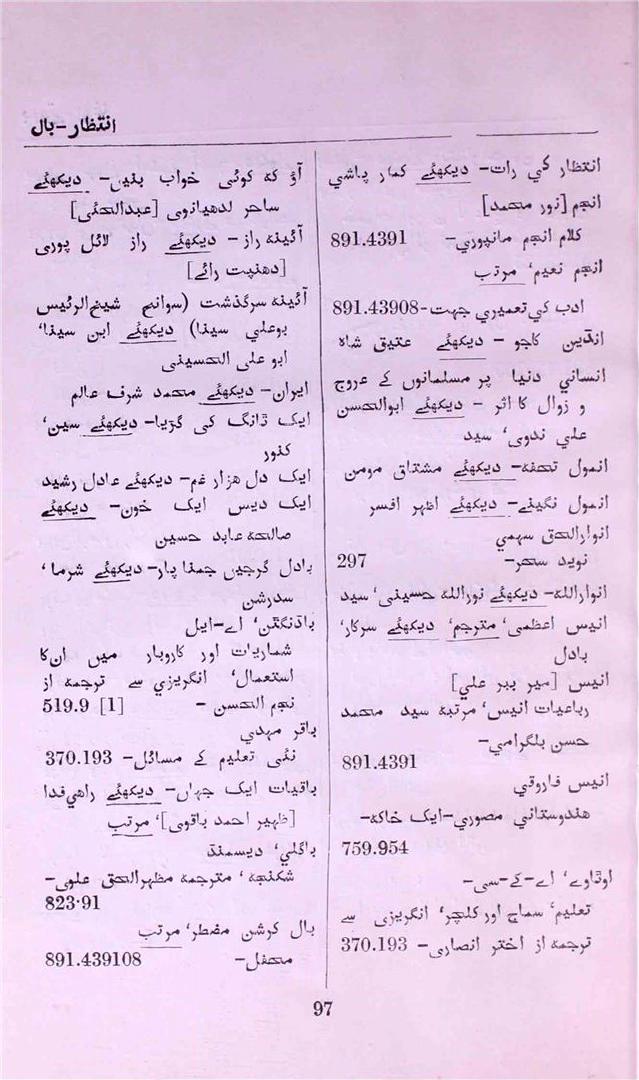 انتظار-بال
انتظار کي رات- ديکھئے کمار پاشي
انجم [نور محمد]
کلام انجم مانپوري- 891.4391
انجم نعيم، مرتب
ادب کي تعميري جہت-891.43908
انڈين کاجو - ديکھئے عتيق شاہ
انساني دنيا پر مسلمانوں کے عروج
و زوال کا اثر - ديکھئے ابوالحسن
علي ندوی، سيد
انمول تحفہ- ديکھئے مشتاق مومن
انمول نگينے- ديکھئے اظہر افسر
انوارالحق سہمي
نويد سحر- 297
انواراللہ- ديکھئے نوراللہ حسيني، سيد
انيس اعظمي، مترجم، ديکھئے سرکار،
بادل
انيس [مير ببر علي]
رباعيات انيس، مرتبہ سيد محمد
حسن بلگرامي-
891.4391
انيس فاروقي
ہندوستاني مصوري-ايک خاکہ-
759.954
اوٹاوے، اے-کے-سي-
تعليم، سماج اور کلچر، انگريزی سے
ترجمہ از اختر انصاری- 370.193
آؤ کہ کوئی خواب بنيں- ديکھئے
ساحر لدھيانوی [عبدالحئی]
آئينہ راز- ديکھئے راز لائل پوری
[دھنپت رائے]
آئينہ سرگذشت (سوانح شيخ‌الرئيس
بوعلي سينا) ديکھئے ابن سينا،
ابو علی الحسينی
ايران- ديکھئے محمد شرف عالم
ايک ٹانگ کی گڑيا- ديکھئے سين،
کنور
ايک دل ہزار غم- ديکھئے عادل رشيد
ايک ديس ايک خون- ديکھئے
صالحہ عابد حسين
بادل گرجيں جمنا پار- ديکھئے شرما،
سدرشن
باڈنگٹن، اے-ايل
شماريات اور کاروبار ميں ان‌کا
استعمال، انگريزی سے ترجمہ از
نجم الحسن - [1] 519.9
باقر مہدي
نئی تعليم کے مسائل- 370.193
باقيات ايک جہاں- ديکھئے راهي‌فدا
[ظہير احمد باقوی]، مرتب
باگلي، ڈيسمنڈ
شکنجہ، مترجمہ مظہرالحق علوی-
823·91
بال کرشن مضطر، مرتب
محفل- 891.439108
97